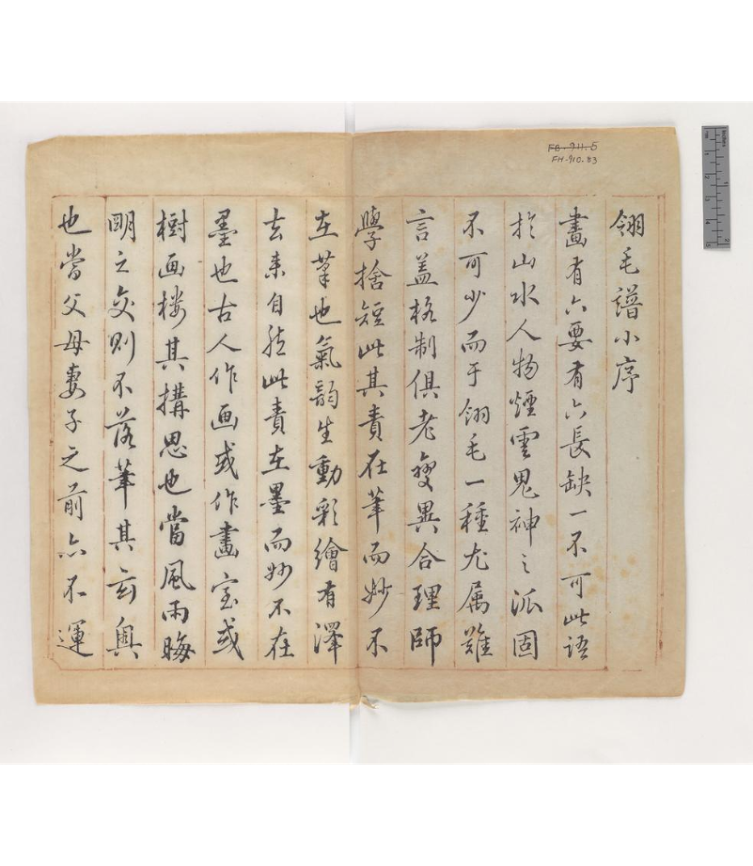 FH.910.83
翎毛譜小序
畫有六要有六長缺一不可此語
於山水人物煙雲鬼神之派固
不可少而于翎毛一種尤属難
言蓋格制俱老變異合理師
學捨短此其責在筆而妙不
在筆也氣韵生動彩繪有澤
去来自然此責在墨而妙不在
墨也古人作画或作畫室或
樹画楼其搆思也當風雨晦
明之交則不落筆其玄奥
也當父母妻子之前亦不運